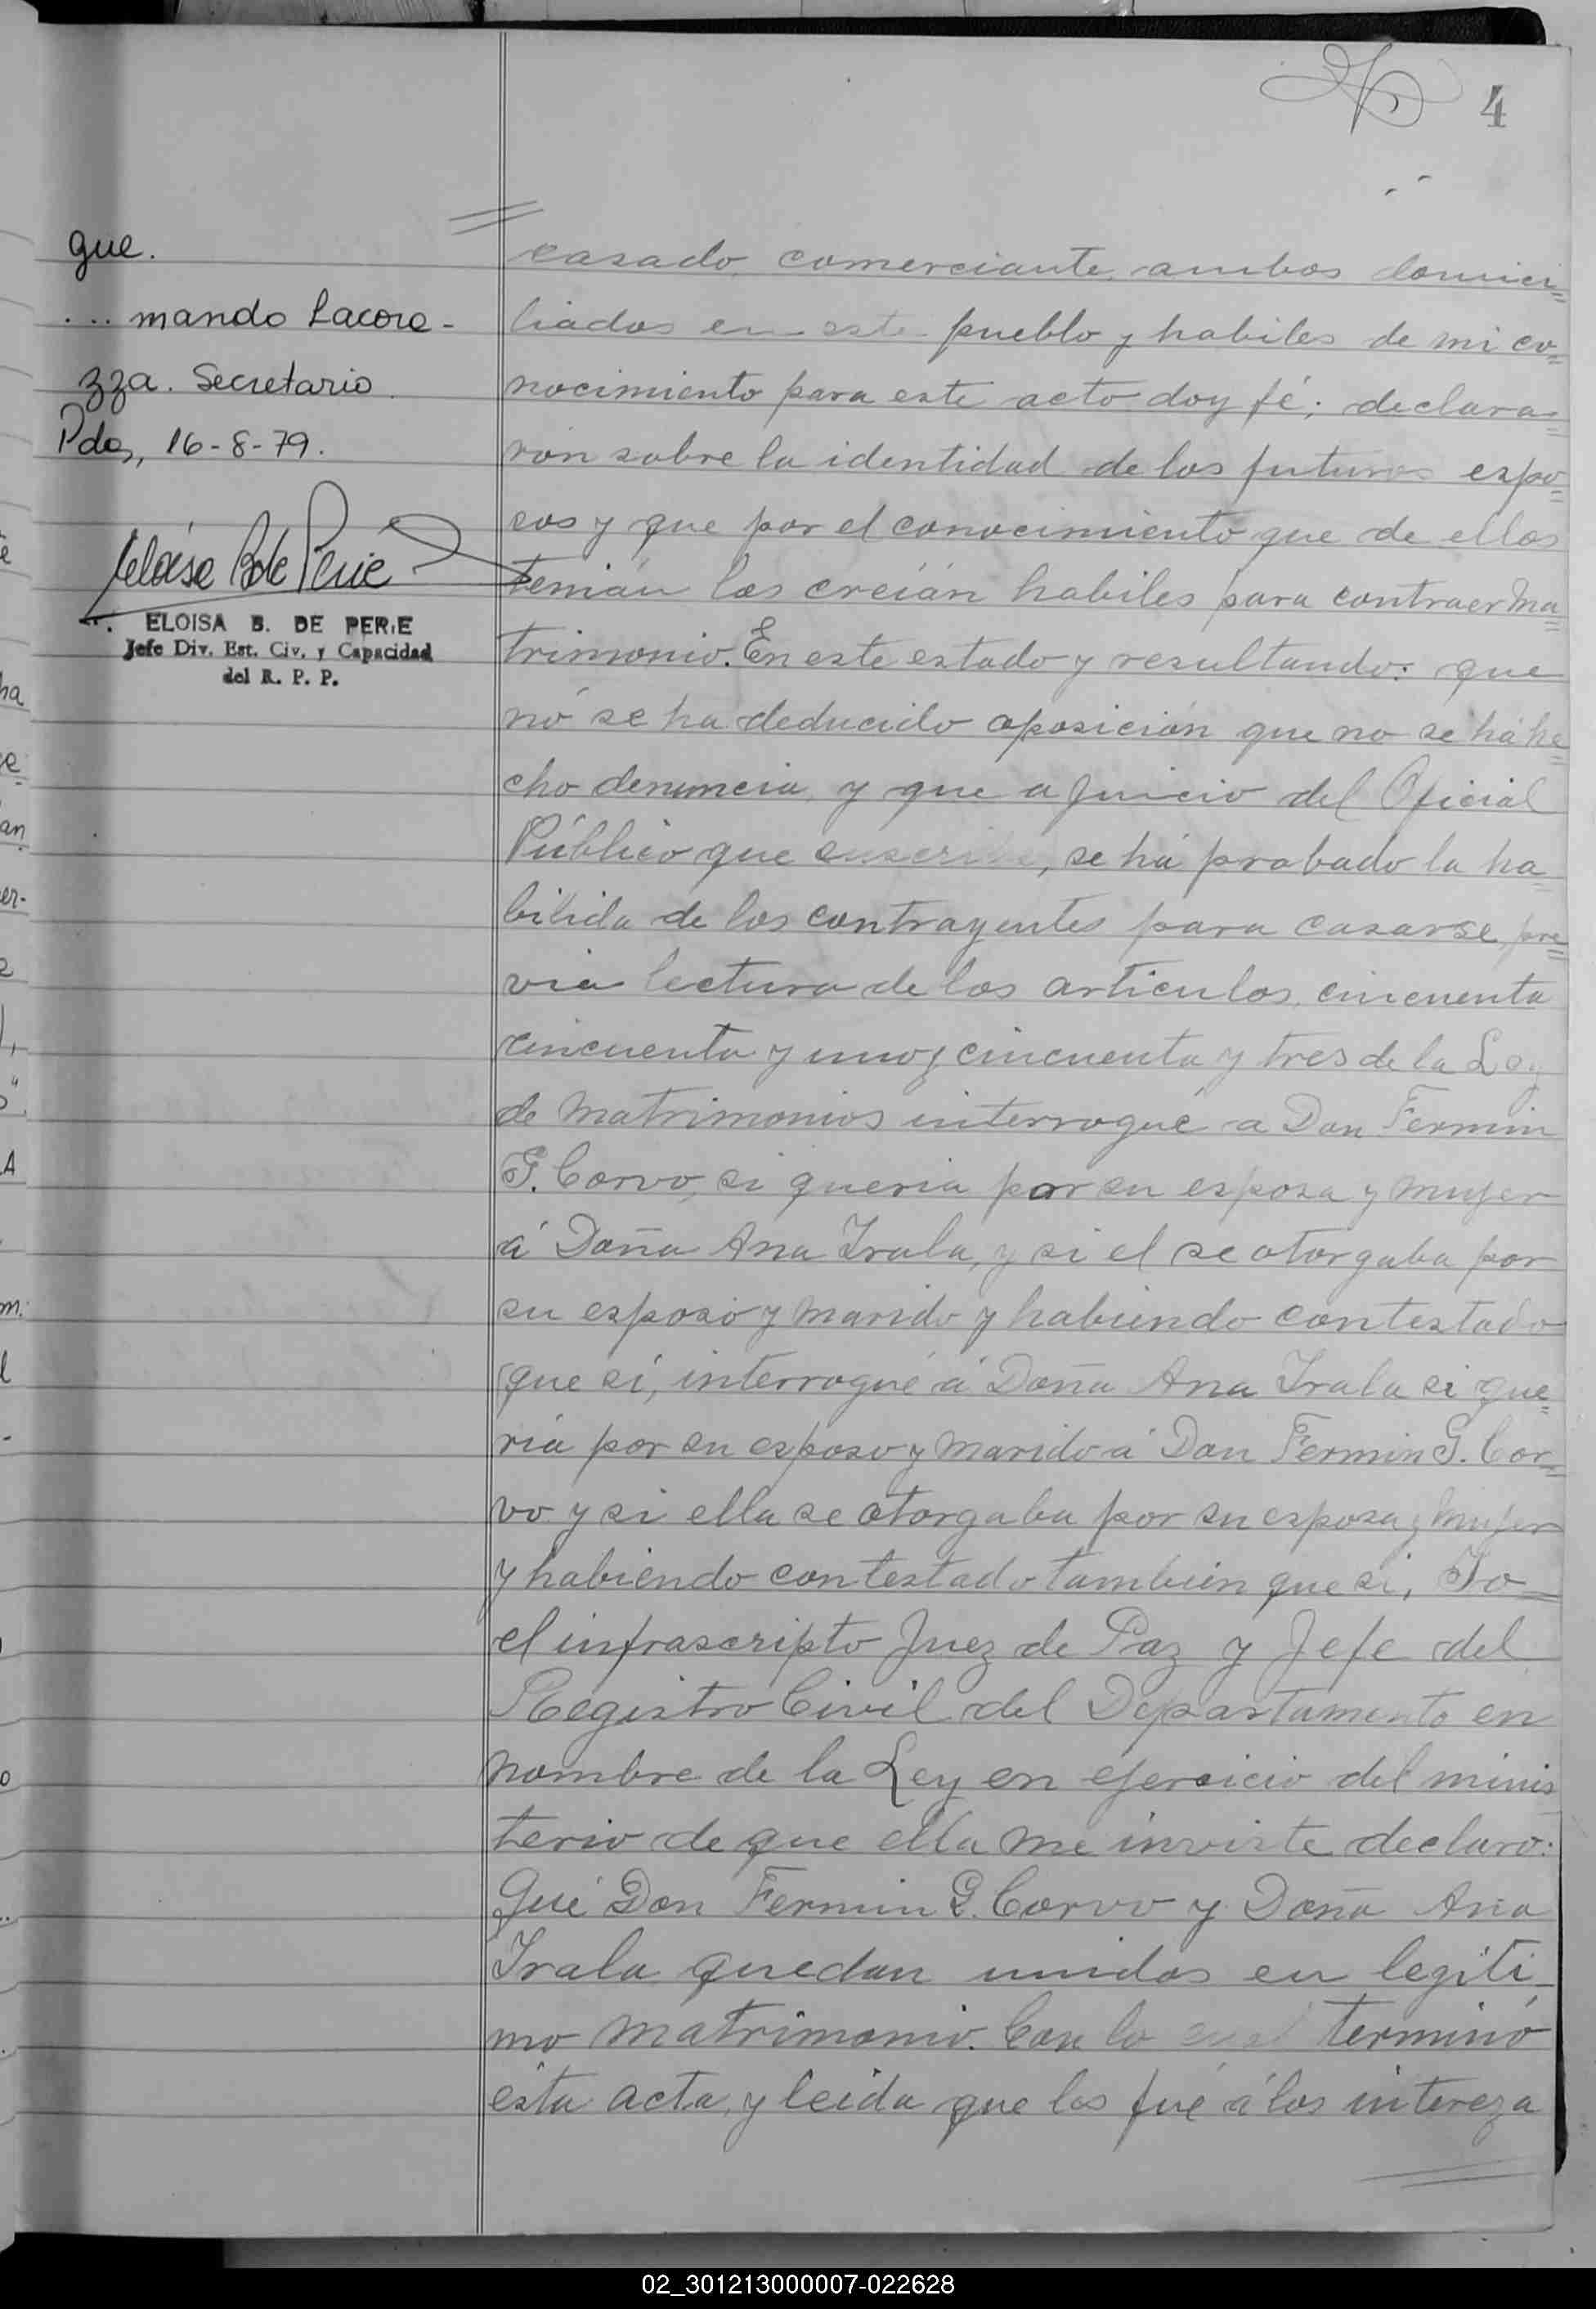 4
que.
... mando Lacore-
zza. Secretario.
Pdas, 16-8-79.
ELOISA B. DE PERIE
Jefe Div. Est. Civ. y Capacidad
del R. P. P.
casado, comerciante, ambos domici=
liados en este pueblo y habiles de mi co=
nocimiento para este acto doy fé; declara=
ron sobre la identidad de los futuros espo=
sos y que por el conocimiento que de ellos
tenián los creián habiles para contraer ma=
trimonio. En este estado y resultando: que
no se ha deducido oposición que no se há he=
cho denuncia, y que a juicio del Oficial
Público que suscribe, se há probado la ha
bilida de los contrayentes para casarse, pre=
via lectura de los articulos, cincuenta
cincuenta y uno y cincuenta y tres de la Ley
de Matrimonios interrogué a Don Fermin
G. Corvo, si queria por su esposa y mujer
á Doña Ana Irala, y si el se otorgaba por
su esposo y marido y habiendo contestado
que sí, interrogué á Doña Ana Irala si que=
ria por su esposo y marido á Don Fermin G. Cor=
vo y si ella se otorgaba por su esposa y mujer
y habiendo contestado tambien que si, Yo
el infrascripto Juez de Paz y Jefe del
Registro Civil del Departamento en
nombre de la Ley en ejercicio del minis
terio de que ella me inviste declaro:
Qué Don Fermin G. Corvo y Doña Ana
Irala quedan unidos en legiti-
mo matrimonio. Con lo cual terminó
esta acta, y leida que los fué á los intereza
02_301213000007-022628